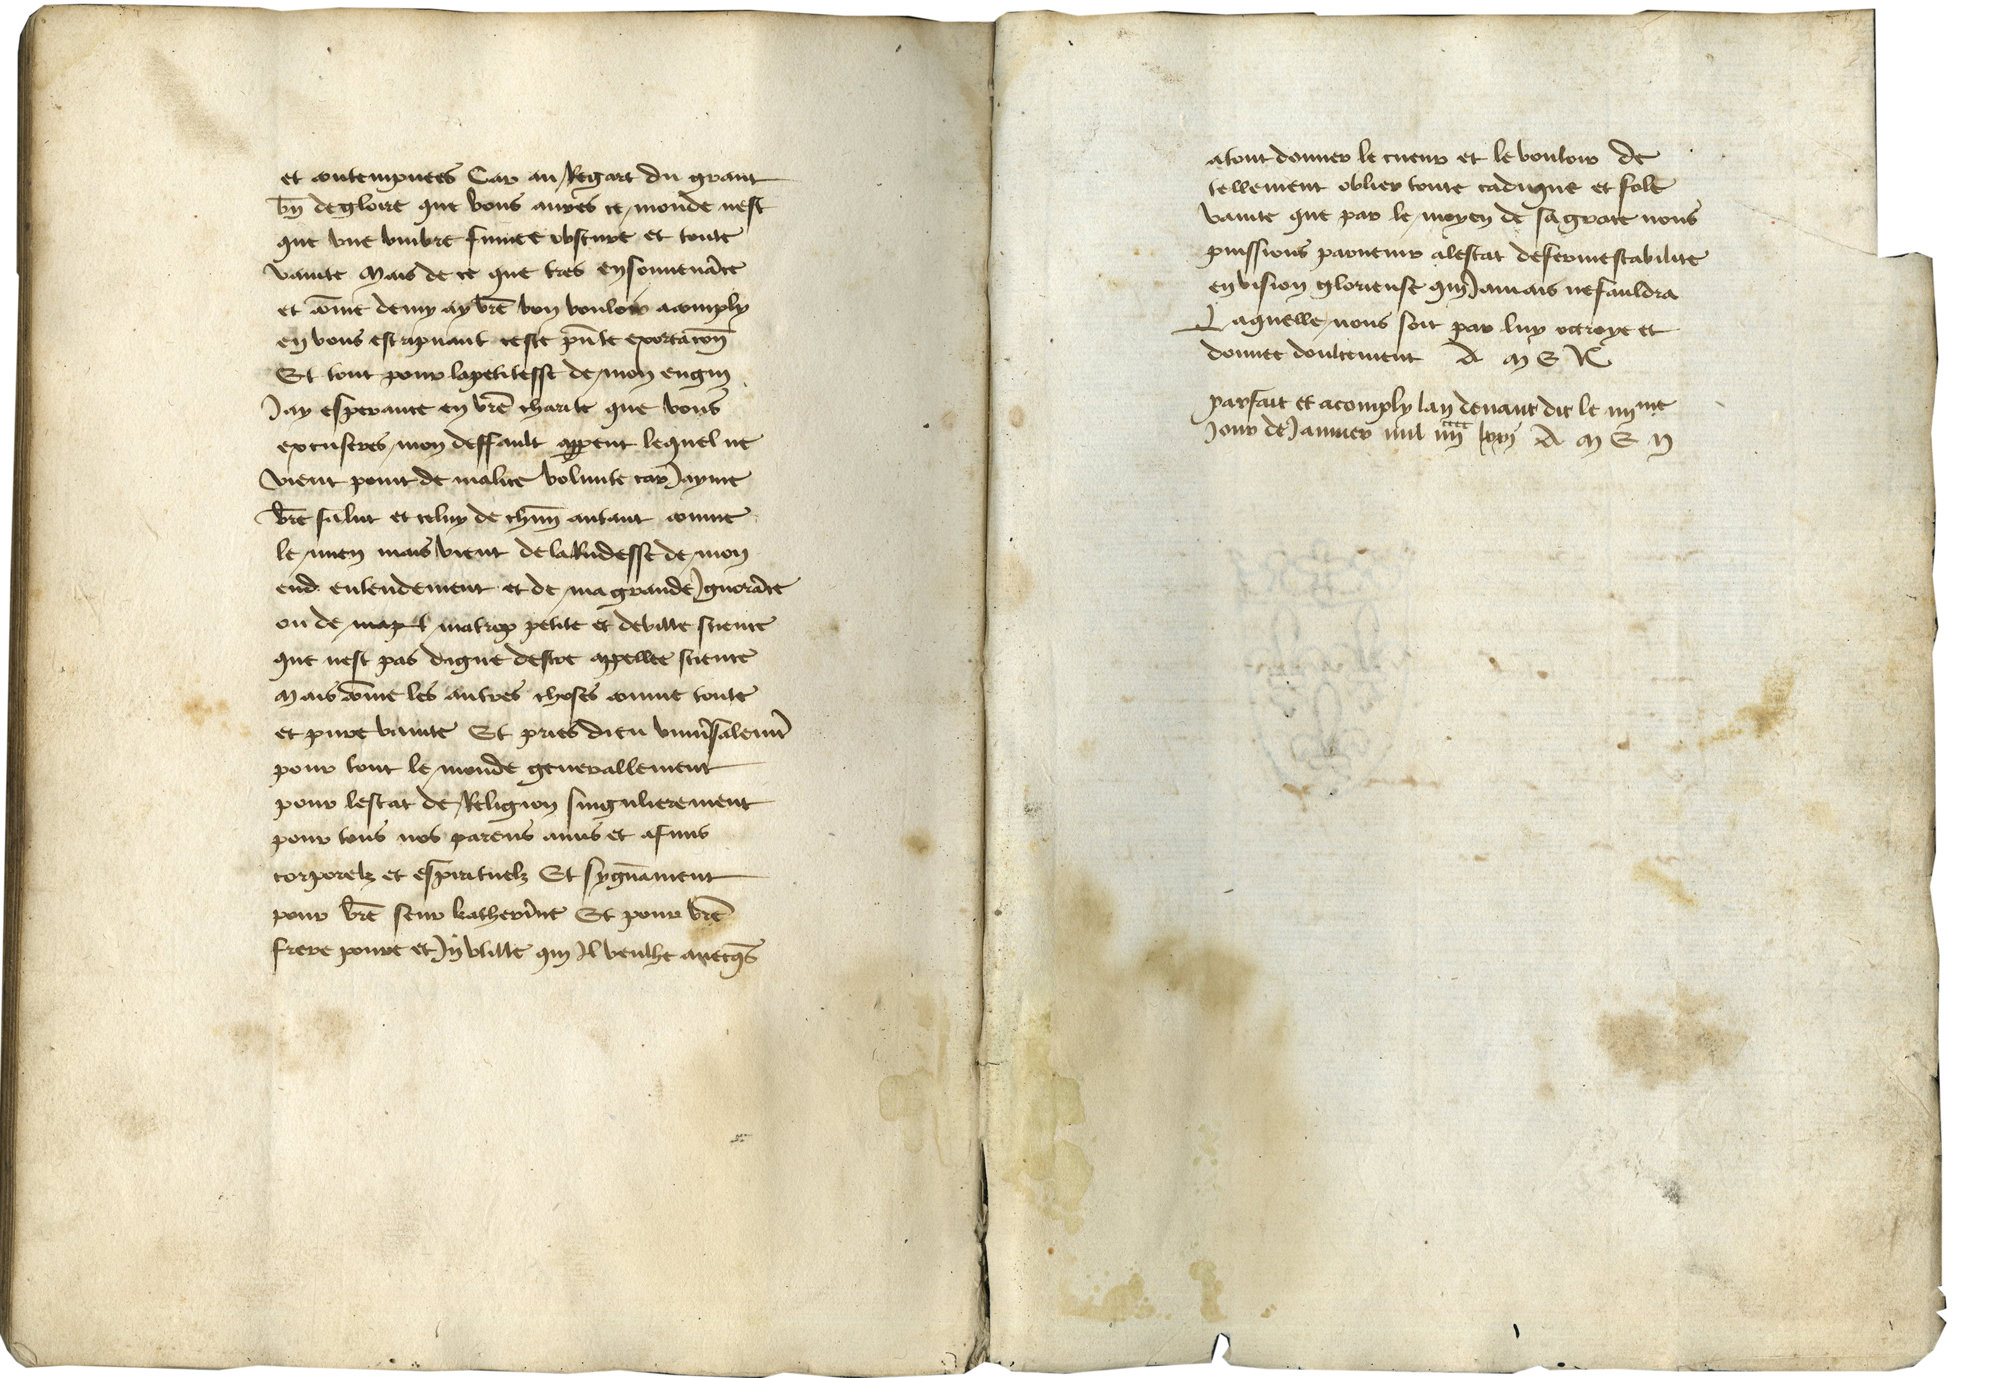 et contempnees Car au Regart du grant
bn̄ de gloire que vous aures ce monde nest
que vne vmbre fumee obscure et toute
vanite Mais de ce que tres ensouuenāce
et cōme demy ay vr̄e bon vouloir acomply
en vous escripuant ceste pn̄te exortacōn
Et tout pour lapetitesse de mon engin
Jay esperance en vr̄e charite que vous
excuseres mon deffault apparent lequel ne
vient point de malice volunte car Jayme
vr̄e salut et celuy de chūn autant comme
le mien mais vient de la Rudesse de mon
end entendement et de ma grande Jgnorāce
ou de ma trop petite et debille science
que nest pas digne destre appellee science
Mais cōme les autres choses comme toute
et pure vanite Et pries dieu vniūsalemt̄
pour tout le monde generallement
pour lestat de Religion singulierement
pour tous nos parens amis et afins
corporelz et espirituelz Et sygnāment
pour vr̄e seur katherine Et pour vr̄e
frere poure et Jnvtille qui Jl veulhe auecqs̄
atout donner le cueur et le vouloir de
tellement oblier toute caduque et fole
vanite que par le moyen de sa grace nous
puissions paruenir alestat defermestabilite
en vision glorieuse qui Jamais nefauldra
Laquelle nous soit par luy octroye et
donnee doulcement A M E N
parfait et acomply lan deuant dit le iiijme
Jour de Januier mil iiijcccc lxxj A M E N